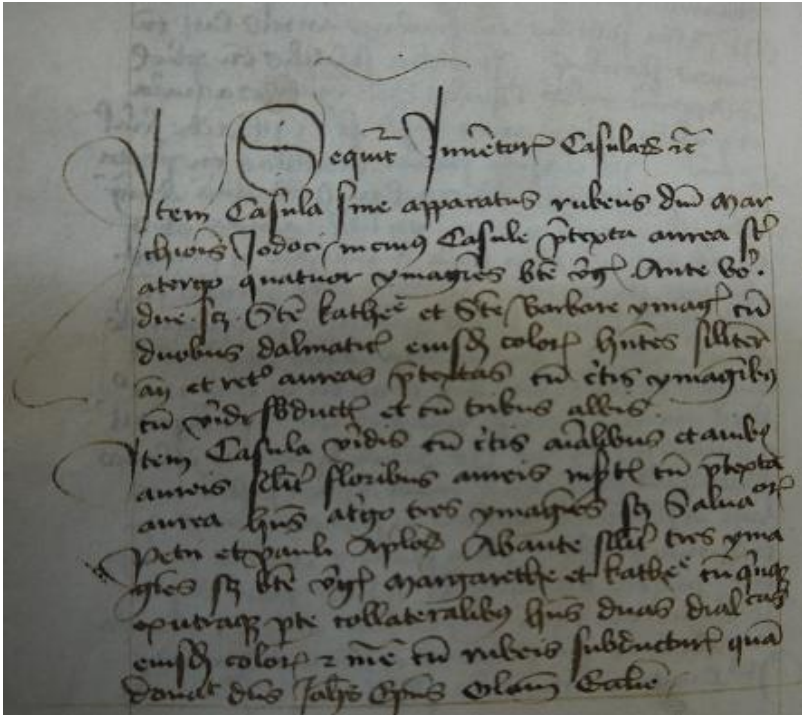 Sequit Inuetor Casular etc
Item Casula sine apparatus rubeus dni Mar
chionis Jodoci, Casule ptexta aurea
atergo quatuor ymagines bte vgis. Ante vo.
due. scz. Ste kathe et Ste Barbare ymag cu
duobus dalmatic eiusd color hntes siliter
an et ret aureas ptextas cu ctis ymagibus
cu vid sbduct et cu tribus albis.
Item Casula viridis cu ctis aialibus et auibus
aureis floribus aureis cu ptexta
aurea hns atgo tres ymagines scz Saluator
Petri et pauli Aplor Abante tres yma
gies scz bte vgis Margarethe et kathe cu
ex utraq pte collateralibus hns duas dialcas
eiusd color cu rubeis subductur qua
donat dns Johes Epus Olom Ecclie